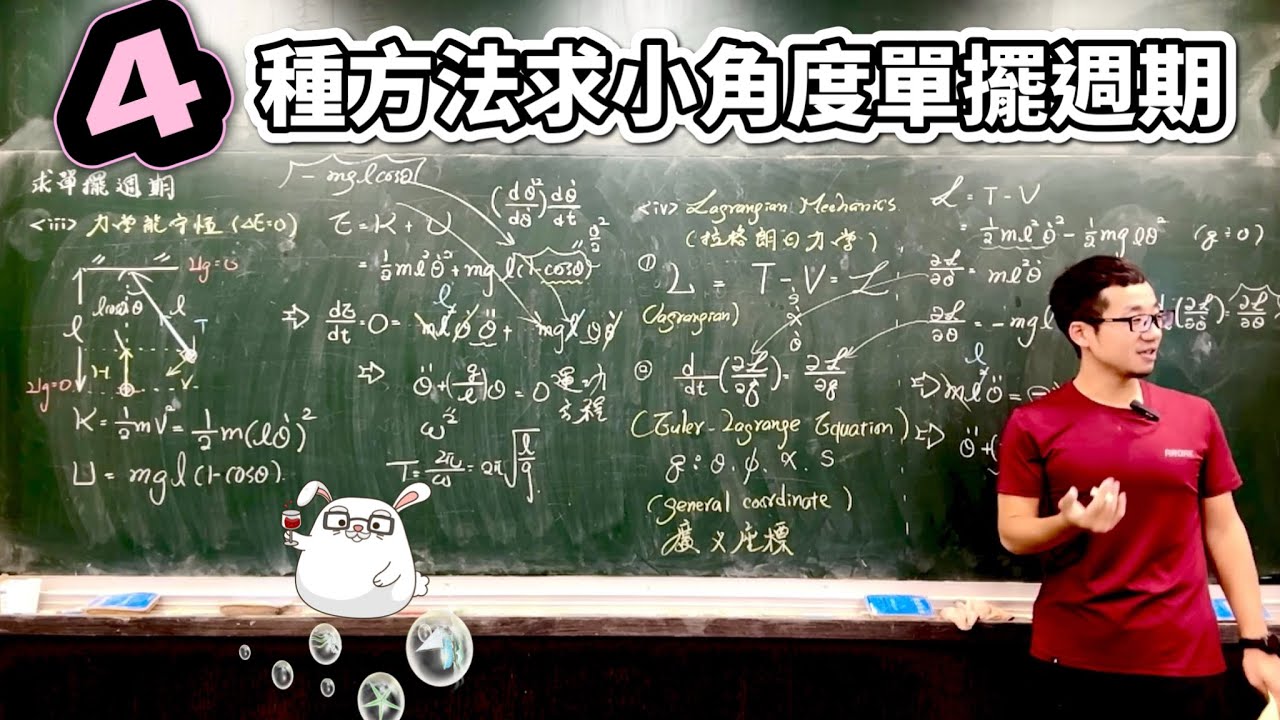 4
種方法求小角度單擺週期
求單擺週期
<iii> 力學能守恆 (ΔE=0)
Ug=0
lcosθ θ l
l
T
H
V
Ug=0
K = ½mV² = ½m(lθ̇)²
U = mgl(1-cosθ).
-mglcosθ
(dθ̇²/dθ̇) dθ̇/dt
E = K + U
= ½ml²θ̇² + mgl(1-cosθ)
θ²/2
⇒ dE/dt = 0 = ml²θ̇θ̈ + mglθθ̇
⇒ θ̈ + (g/l)θ = 0 運動方程
ω²
T = 2π/ω = 2π√(l/g).
<iv> Lagrangian Mechanics
(拉格朗日力學)
① L = T - V = ℒ
(Lagrangian)
② d/dt(∂ℒ/∂q̇) = ∂ℒ/∂q
(Euler-Lagrange Equation)
q : θ. φ. x. s
(general coordinate)
廣义座標
ℒ = T - V
= ½ml²θ̇² - ½mglθ² (q : θ)
∂ℒ/∂θ̇ = ml²θ̇
∂ℒ/∂θ = -mgl
(∂ℒ/∂θ̇) = ∂ℒ/∂θ
⇒ ml²θ̈ = -
⇒ θ̈ + (